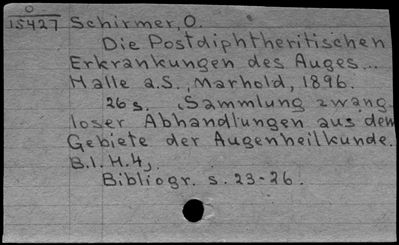 O
15427 Schirmer, O.
Die Postdiphtheritischen
Erkrankungen des Auges...
Halle a.S., Marhold, 1896.
26 s. (Sammlung zwang-
loser Abhandlungen aus dem
Gebiete der Augenheilkunde.
B.I. H.4).
Bibliogr. s. 23-26.